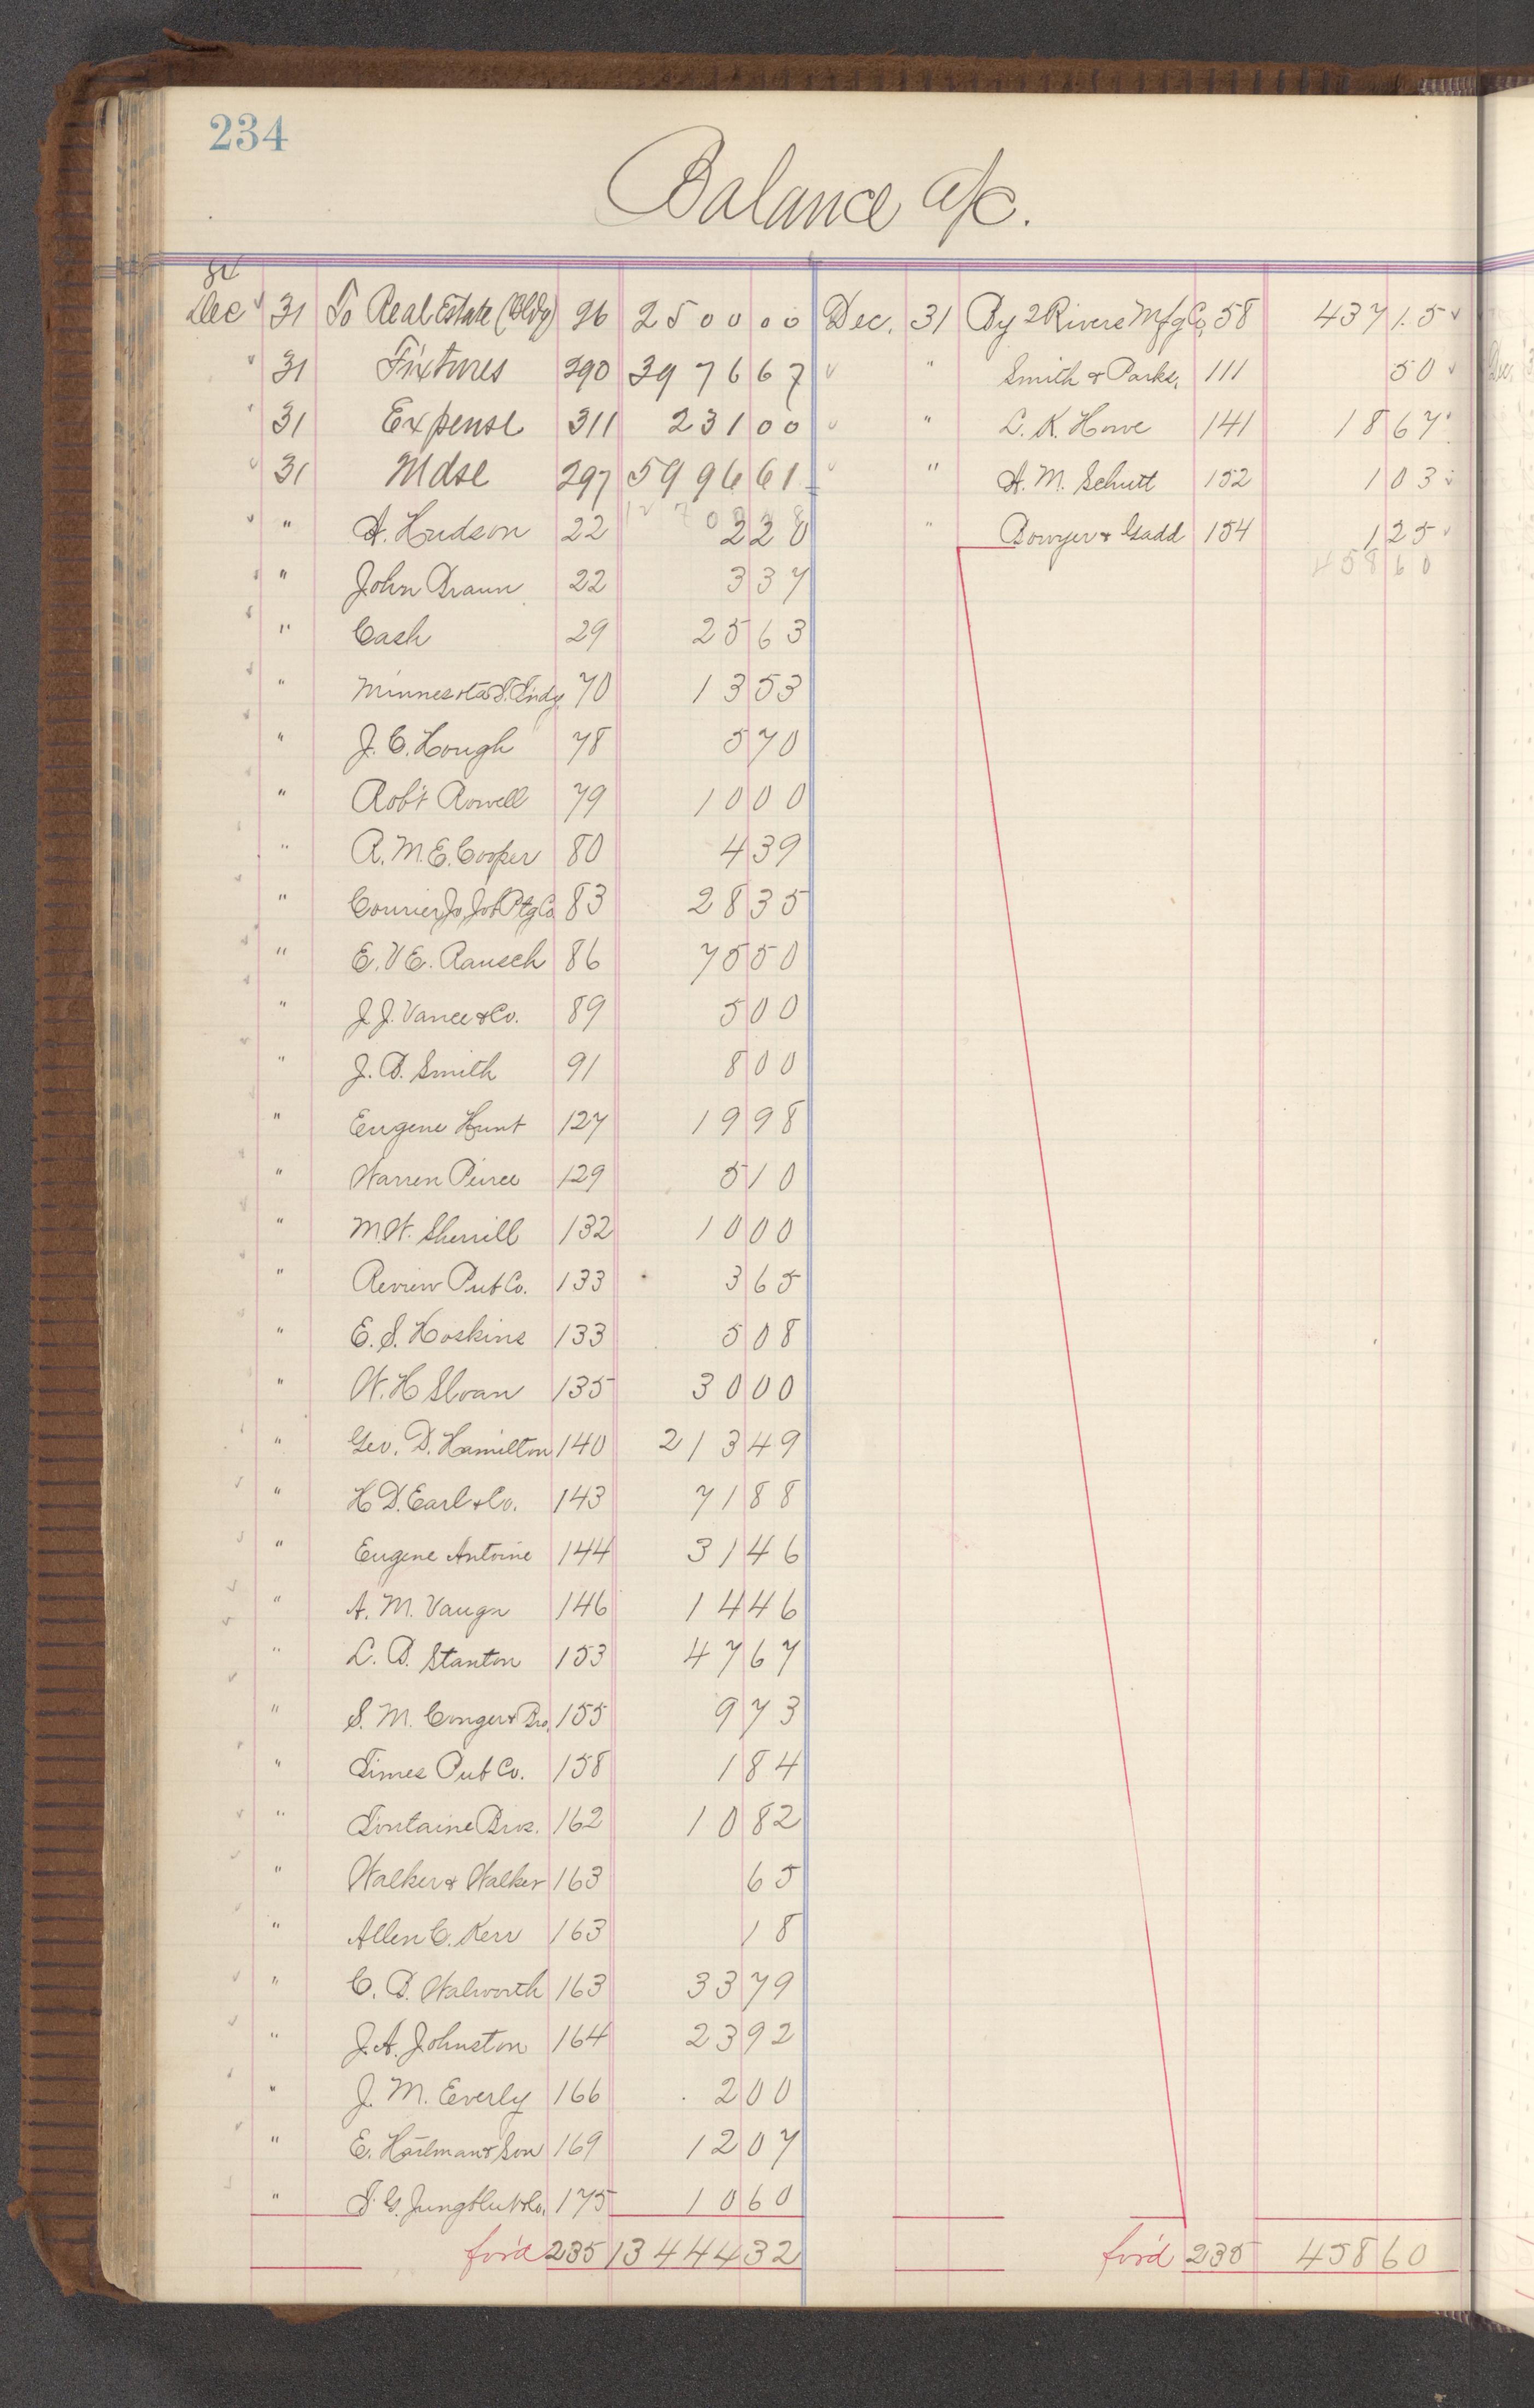 234
Balance a/c.
Dec 31 To Real Estate (Bldg) 26 2500 00 Dec. 31 By 2 Rivers Mfg Co, 58 437 15
31 Fixtures 290 3976 67 " Smith & Parks, 111 50
31 Expense 311 231 00 " L. K. Howe 141 18 67
31 Mdse 297 5996 61 " A. M. Schutt 152 1 03
" A. Hudson 22 2 28 " Bowyer & Gadd 154 1 25
" John Braun 22 3 37 458 60
" Cash 29 25 63
" Minnesota T. Findy 70 13 53
" J. C. Hough 78 5 70
" Rob't Rowell 79 10 00
" R. M. E. Cooper 80 4 39
" Courier Jo, Job Ptg Co 83 28 35
" E. V. E. Rausch 86 75 50
" J. J. Vance & Co. 89 5 00
" J. B. Smith 91 8 00
" Eugene Hunt 127 19 98
" Warren Peirce 129 5 10
" M. W. Sherrill 132 10 00
" Review Pub Co. 133 3 65
" E. S. Hoskins 133 5 08
" W. H Sloan 135 30 00
" Geo. D. Hamilton 140 213 49
" H. D. Earl & Co. 143 71 88
" Eugene Antoine 144 31 46
" A. M. Vaugn 146 14 46
" L. B. Stanton 153 47 67
" S. M. Conger & Bro, 155 9 73
" Times Pub Co. 158 1 84
" Fontaine Bros. 162 10 82
" Walker & Walker 163 65
" Allen C. Kerr 163 18
" C. D. Walworth 163 33 79
" J. A. Johnston 164 23 92
" J. M. Everly 166 2 00
" E. Hailman & Son 169 12 07
" S. G. Jungblut & Co. 175 10 60
for'd 235 13444 32 for'd 235 458 60